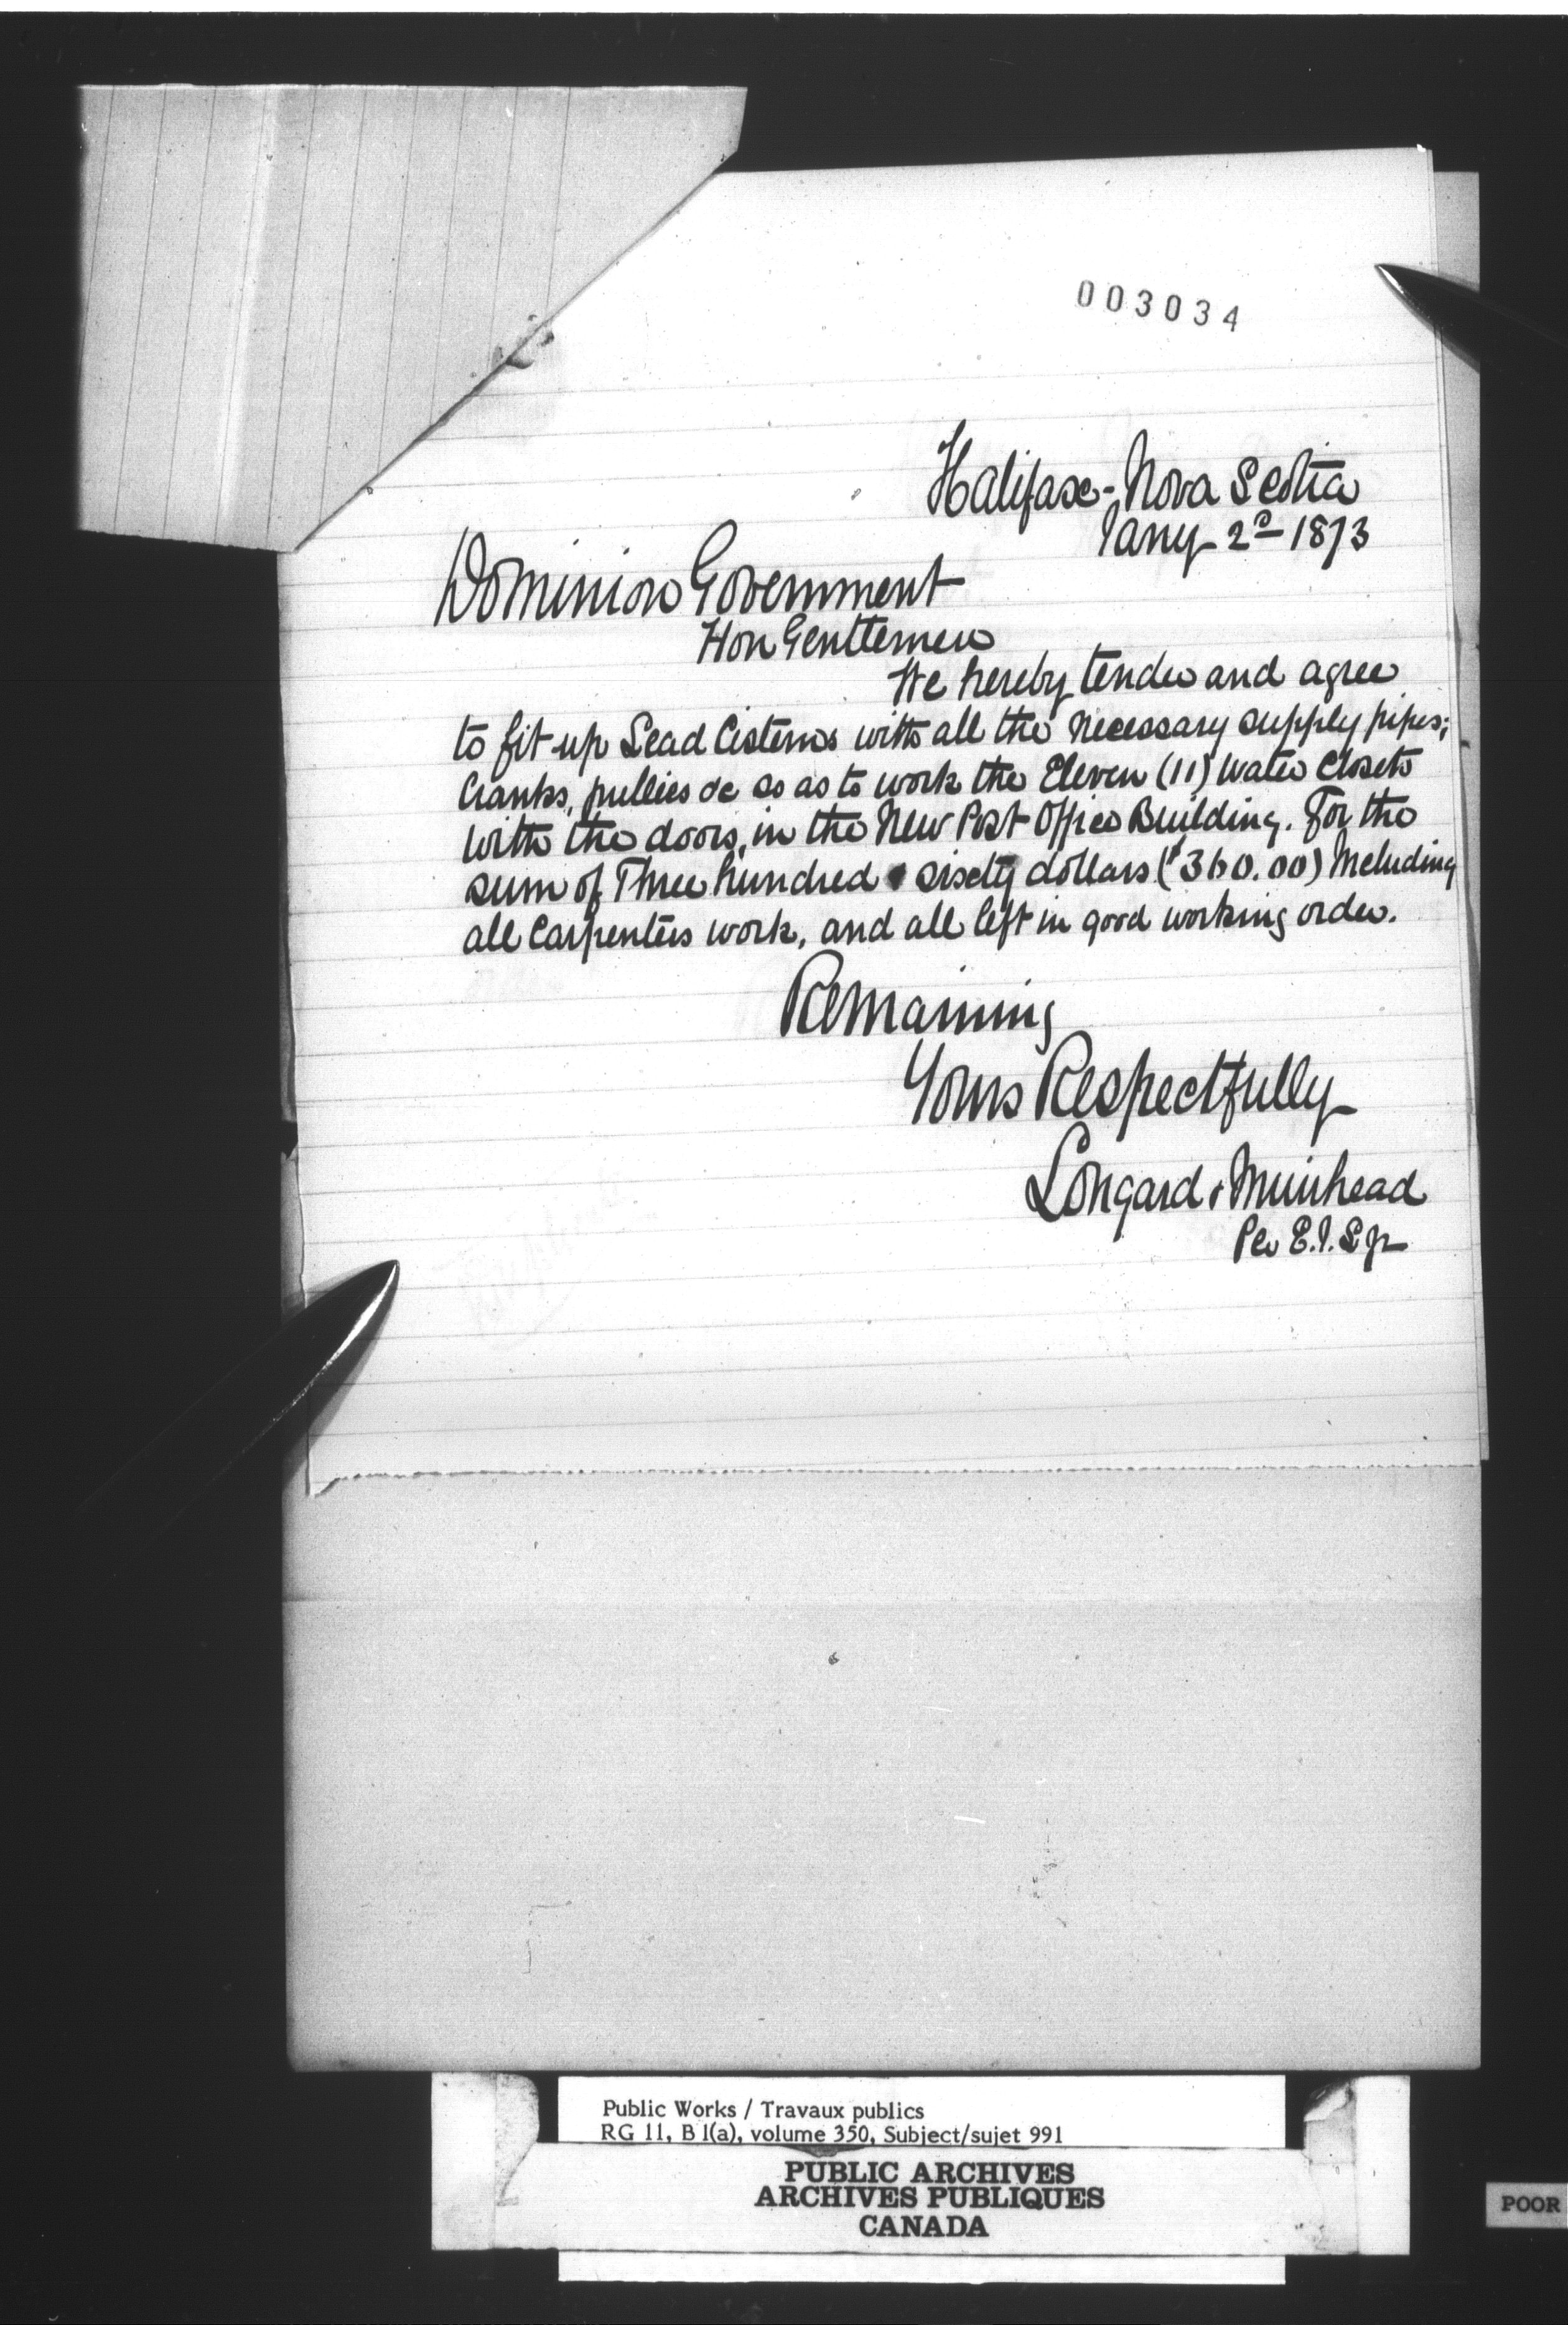 003034
Halifax - Nova Scotia
Jany 2d 1873
Dominion Government
Hon Gentlemen
We hereby tender and agree
to fit up Lead Cisterns with all the necessary supply pipes;
Cranks, pullies &c so as to work the Eleven (11) Water Closets
with the doors, in the New Post Office Building. For the
sum of Three hundred & sixty dollars ($360.00) Including
all Carpenters work, and all left in good working order.
Remaining
Yours Respectfully
Longard & Muirhead
Per E.J.L Jr
Public Works / Travaux publics
RG 11, B 1(a), volume 350, Subject/sujet 991
PUBLIC ARCHIVES
ARCHIVES PUBLIQUES
CANADA
POOR